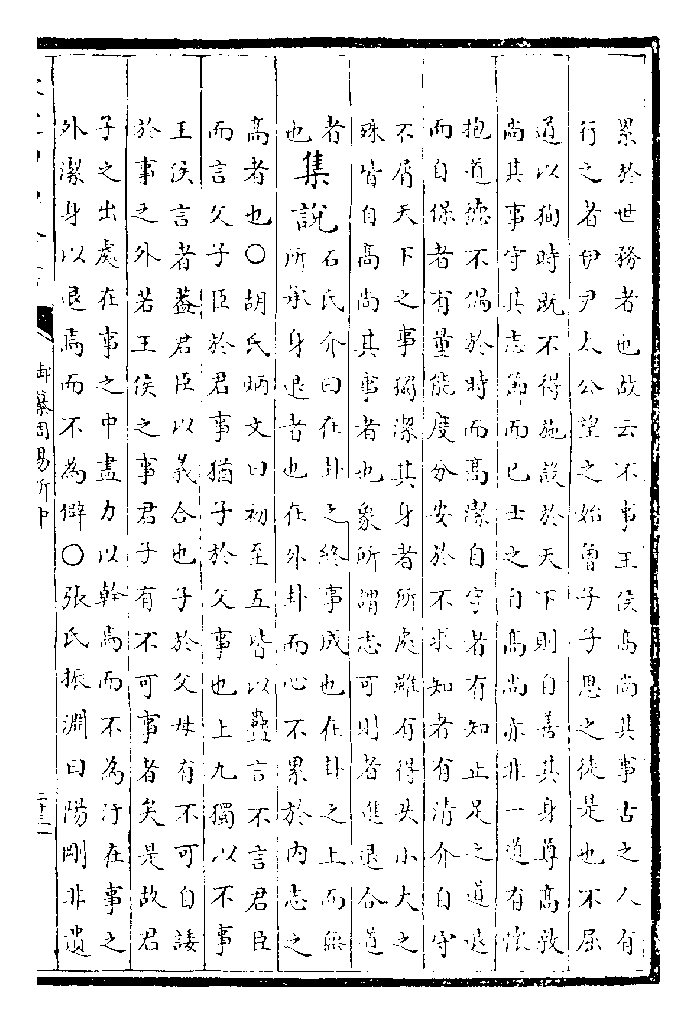 累於世務者也故云不事王侯高尚其事古之人有
行之者伊尹太公望之始曾子子思之徒是也不屈
道以狥時既不得施設於天下則自善其身尊高敦
尚其事守其志節而已士之自高尚亦非一道有懷
抱道德不偶於時而高潔自守者有知止足之道退
而自保者有量能度分安於不求知者有清介自守
不屑天下之事獨潔其身者所處雖有得失小大之
殊皆自高尚其事者也象所謂志可則者進退合道
者
也
集說
石氏介曰在卦之終事成也在卦之上而無
所承身退者也在外卦而心不累於內志之
高者也〇胡氏炳文曰初至五皆以蠱言不言君臣
而言父子臣於君事猶子於父事也上九獨以不事
王侯言者蓋君臣以義合也子於父母有不可自諉
於事之外若王侯之事君子有不可事者矣是故君
子之出處在事之中盡力以幹焉而不為汙在事之
外潔身以退焉而不為僻〇張氏振淵曰陽剛非遺
御纂周易折中